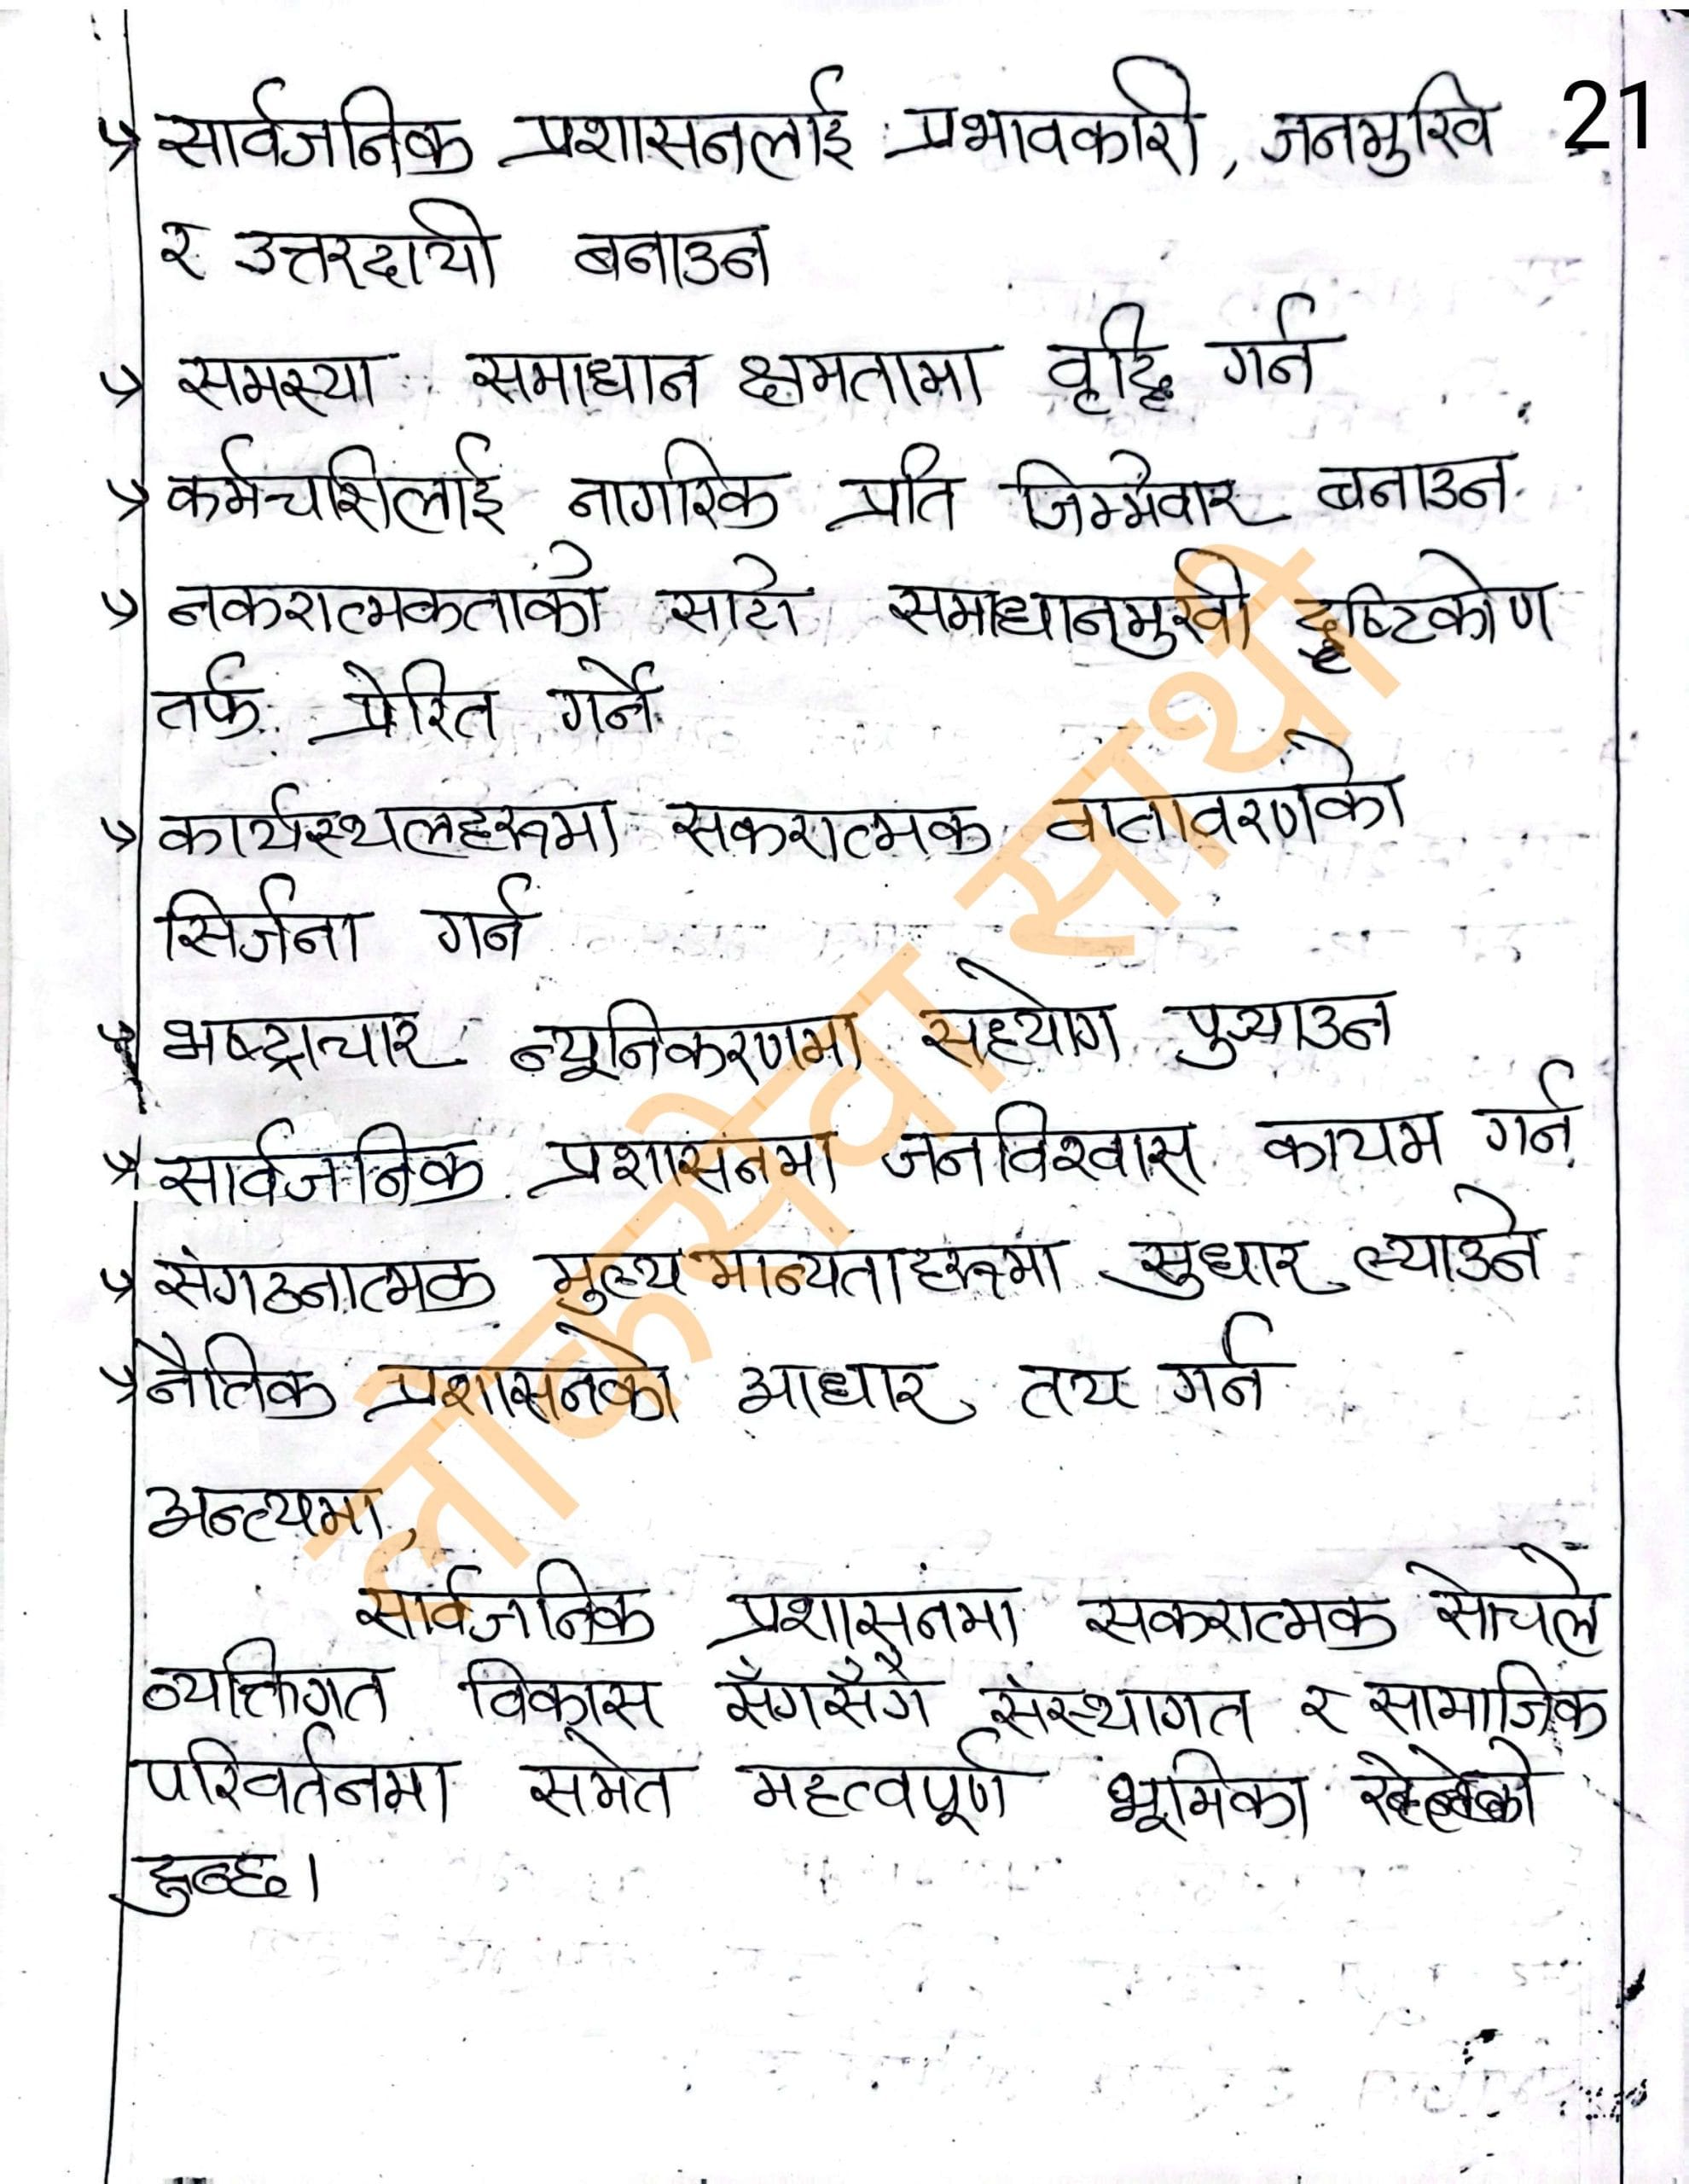 21
सार्वजनिक प्रशासनलाई प्रभावकारी, जनमुखि
र उत्तरदायी बनाउन
समस्या समाधान क्षमतामा वृद्धि गर्न
कर्मचारीलाई नागरिक प्रति जिम्मेवार बनाउन
नकरात्मकताको साटो समाधानमुखी दृष्टिकोण
तर्फ प्रेरित गर्ने
कार्यस्थलहरूमा सकरात्मक वातावरणको
सिर्जना गर्न
भष्ट्राचार न्यूनिकरणमा सहयोग पुर्‍याउन
सार्वजनिक प्रशासनमा जनविश्वास कायम गर्न
संगठनात्मक मुल्य मान्यताहरूमा सुधार ल्याउने
नैतिक प्रशासनको आधार तय गर्न
अन्त्यमा,
सार्वजनिक प्रशासनमा सकरात्मक सोचले
व्यक्तिगत विकास सँगसँगै संस्थागत र सामाजिक
परिवर्तनमा समेत महत्वपूर्ण भूमिका
हुन्छ।
लोकसेवा साथी